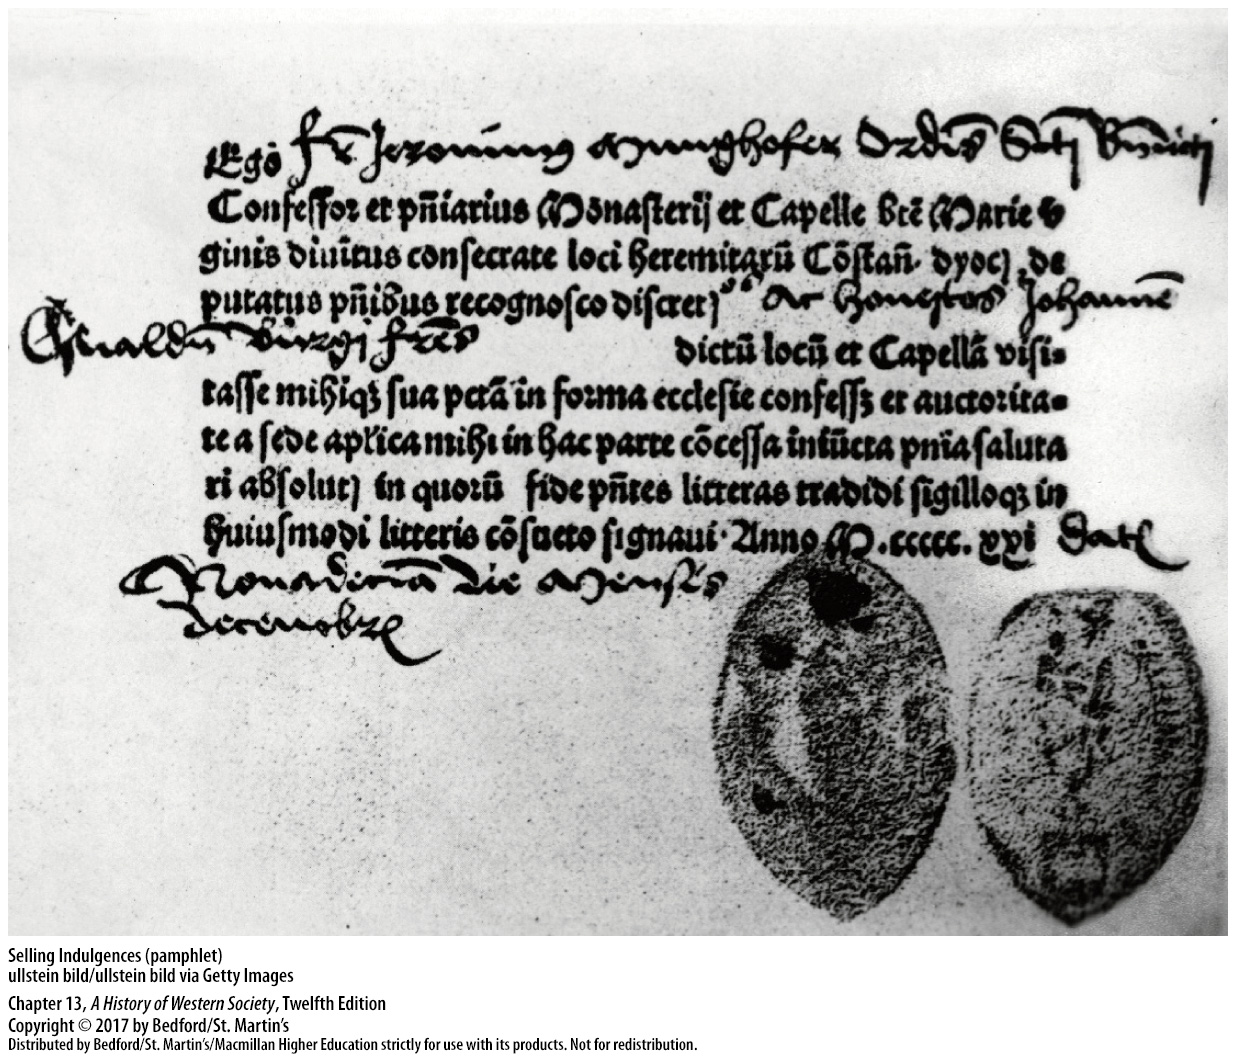 Ego fr Jeronimus Munghofer Ordīs Scti Bn̄dicti
Confessor et pn̄iarius Monasterij et Capelle btē Marie v
ginis diuītus consecrate loci heremitarū Cōstan̄. dyoc̄ , de
putatus pn̄ibus recognosco discret Ac honestos Johannē
Osualdū fr̄es
dictū locū et Capellā visi-
tasse mihiqꝫ sua pctā in forma ecclesie confessꝫ et auctorita-
te a sede aplica mihi in hac parte cōcessa iniūcta pn̄ia saluta
ri absolut in quorū fide pn̄tes litteras tradidi sigilloqꝫ in
huiusmodi litteris cōsueto signaui. Anno M.ccccc.xxi dat
Nonadecīa Die Mensis
decembr
Selling Indulgences (pamphlet)
ullstein bild/ullstein bild via Getty Images
Chapter 13, A History of Western Society, Twelfth Edition
Copyright © 2017 by Bedford/St. Martin’s
Distributed by Bedford/St. Martin’s/Macmillan Higher Education strictly for use with its products. Not for redistribution.